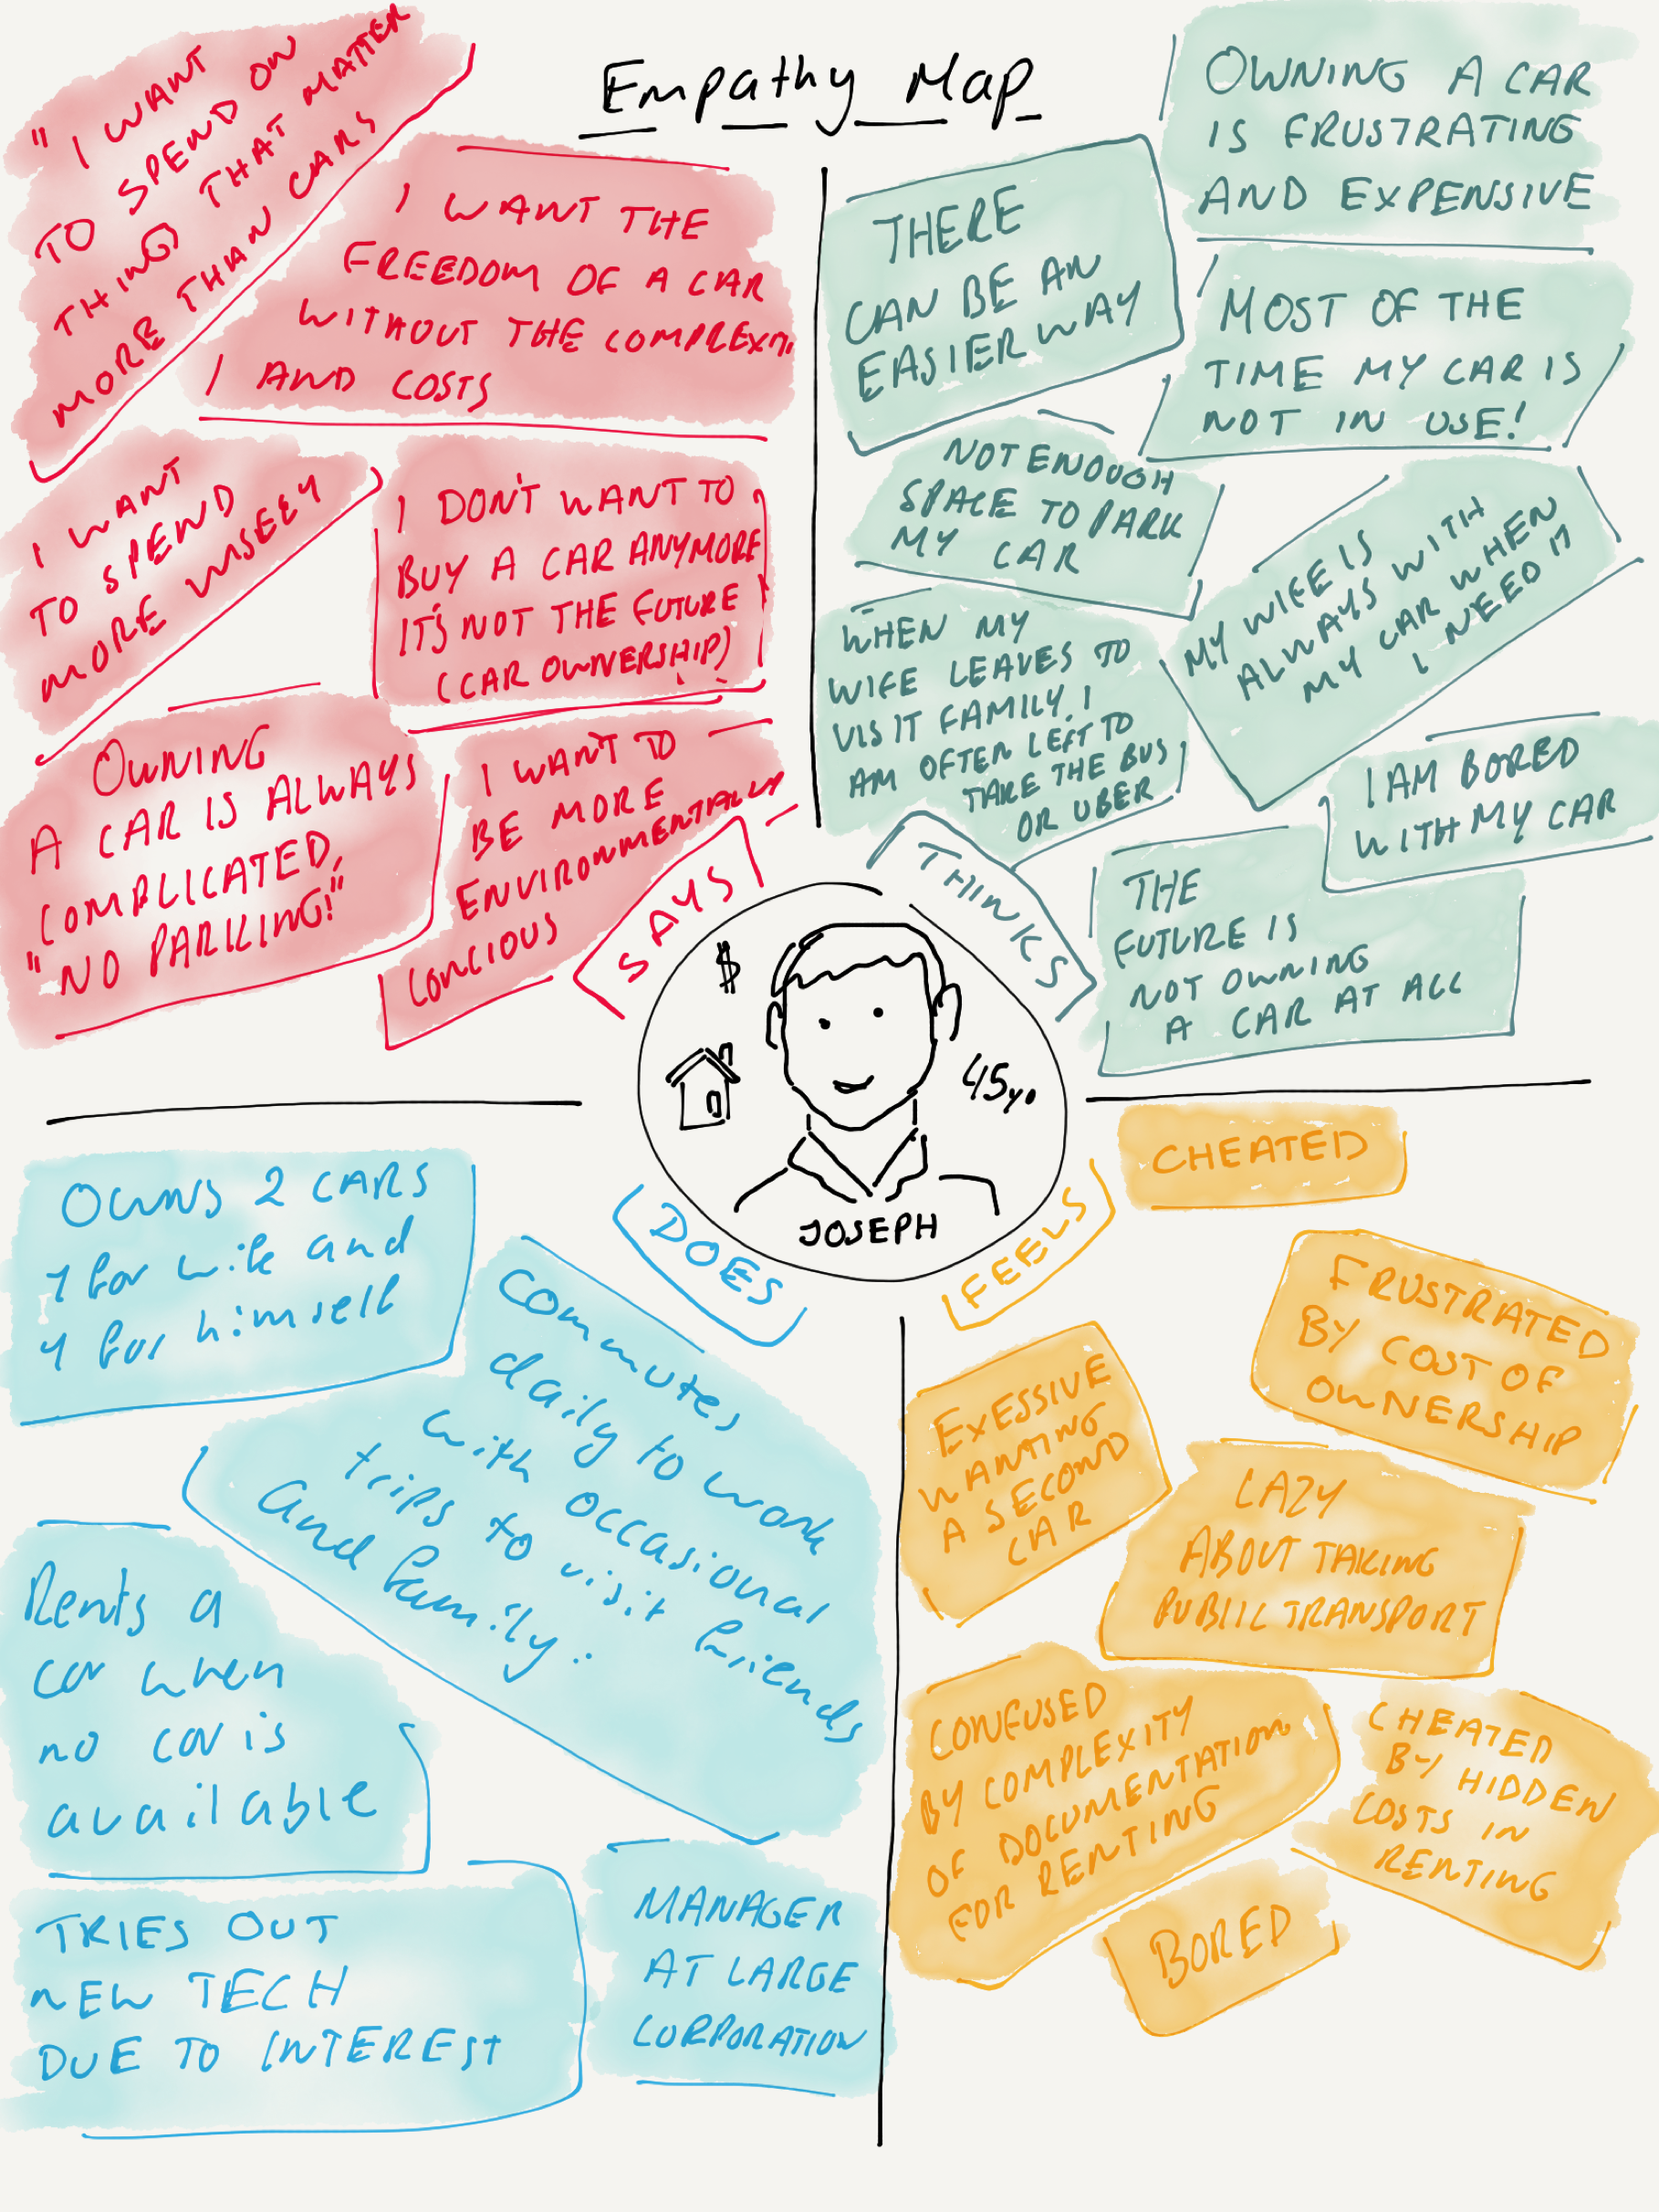 Empathy Map
" I WANT
TO SPEND ON
THINGS THAT MATTER
MORE THAN CARS
I WANT THE
FREEDOM OF A CAR
WITHOUT THE
AND COSTS
I WANT
TO SPEND
MORE WISELY
I DON'T WANT TO
BUY A CAR ANYMORE
IT'S NOT THE FUTURE
(CAR OWNERSHIP)
OWNING
A CAR IS ALWAYS
COMPLICATED,
"NO PARKING!"
I WANT TO
BE MORE
ENVIRONMENTALLY
CONCIOUS
SAYS
THERE
CAN BE AN
EASIER WAY
OWNING A CAR
IS FRUSTRATING
AND EXPENSIVE
MOST OF THE
TIME MY CAR IS
NOT IN USE!
NOT ENOUGH
SPACE TO PARK
MY CAR
MY WIFE IS
ALWAYS WITH
MY CAR WHEN
I NEED IT
WHEN MY
WIFE LEAVES TO
VISIT FAMILY. I
AM OFTEN LEFT TO
TAKE THE BUS
OR UBER
I AM BORED
WITH MY CAR
THE
FUTURE IS
NOT OWNING
A CAR AT ALL
THINKS
$
45yo
JOSEPH
DOES
OWNS 2 CARS
1 for wife and
1 for himself
Commutes
daily to work
with occasional
trips to visit friends
and family.
Rents a
car when
no car is
available
TRIES OUT
NEW TECH
DUE TO INTEREST
MANAGER
AT LARGE
CORPORATION
FEELS
CHEATED
FRUSTRATED
BY COST OF
OWNERSHIP
EXESSIVE
WANTING
A SECOND
CAR
LAZY
ABOUT TAKING
PUBLIC TRANSPORT
CONFUSED
BY COMPLEXITY
OF DOCUMENTATION
FOR RENTING
CHEATED
BY HIDDEN
COSTS IN
RENTING
BORED